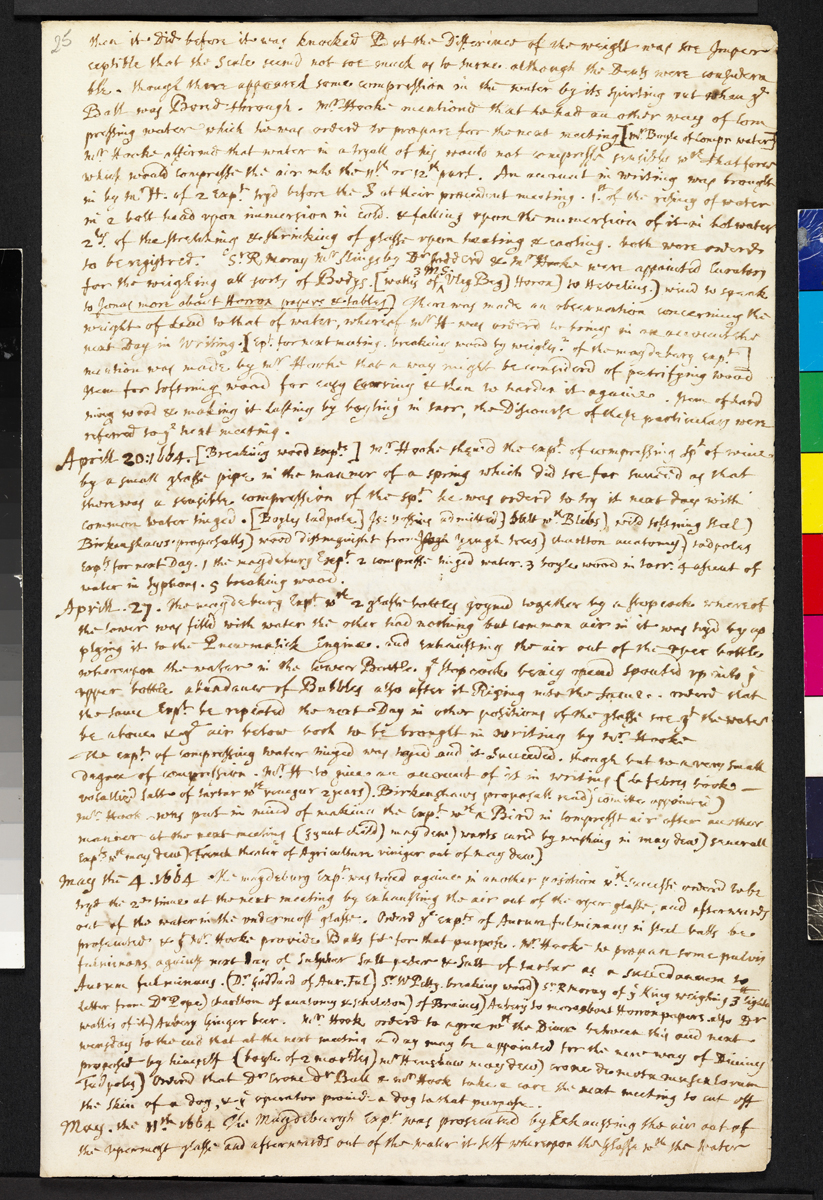 25
then it Did before it was knocked But the Difference of the weight was soe Imper
ceptible that the Scale seemd not soe much as to turne although the Dents were considera
ble. though there appeared some compression in the water by its spirting out when ye
Ball was Bored through. Mr. Hooke mentiond that he had an other way of Com
pressing water which he was orderd to prepare for the next meeting [Mr Boyle of compr water]
Mr Hooke affirmd that water in a tryall of his would not compresse sensibly wth that force
which would compresse the air into the 11th or 12th part. An account in writing was brought
in by Mr. H. of 2 Expts tryd before the at their precedent meeting. 1st of the rising of water
in 2 bolt head upon immersion in Cold. & falling upon the immersion of it in hot water
2ly. of the stretching & shrinking of glasse upon heating & cooling. both were orderd
to be registred. Sr. R Moray Mr Slingsby Dr Godderd & Mr Hooke were appointed Curators
for the weighing all sorts of Bodys. [wallis of Vleg Beg) Horox) to Hevelius.) wind to speak
to Jonas more about Horrox papers & tables) There was made an obseruation concerning the
weight of Lead to that of water, whereof Mr H was orderd to bring in an account the
next Day in Writing. [Expt. for next meeting. breaking wood by weight. of the magdeburg Expt.]
mention was made by Mr Hooke that a way might be considerd of petrifying wood
Item for softning wood for easy & then to harden it againe. Item of hard
ning wood & making it lasting by boyling in tarr, the Discourse of these particulars were
referred to ye next meeting.
Aprill 20: 1664. [Breaking wood Expts.] Mr. Hooke shewd the Expt. of compressing spt. of wine
by a small glasse pipe in the manner of a spring which did soe far succeed as that
there was a sensible compression of the spt. he was orderd to try it next day with
common water tinged. [Boyles tadpole] admitted) wth Blebs) wild softning steel)
Birkenshaws proposalls) wood distinguisht from rough trees) charlton anatomy) tadpoles
Expts for next Day. 1 the magdeburg Expt. 2 compresse tinged water. 3 boyle wood in tarr. 4 ascent of
water in syphons. 5 breaking wood.
Aprill. 27. The magdeburg Expt. wth 2 glasse bottles joynd together by a stopcock whereof
the lower was filld with water the other had nothing but common air in it was tryd by ap
plying it to the Pneumatick Engine. and exhausting the air out of the vper bottle
wherevpon the water in the Lower Bottle. ye stopcock being opend spouted vp into ye
vpper bottle abundance of Bubbles also after it Rising into the same. orderd that
the same Expt be repeated the next Day in other positions of the glasse soe yt the water
be above & ye air below both to be brought in writing by Mr. Hooke
The expt. of compressing water tinged was tryed and it succeeded. though but to a very small
degree of compression. Mr. H to giue an account of it in writing (Le febres booke
volatlied salt of tartar wth vinegar 2 years). Birkenshaws proposall read) comittee appointed)
Mr. Hook was put in mind of making the Expt wth a Bird in compresst air after another
manner at the next meeting ( child) may dew) warts curd by washing in may dew) severall
Expts wth may dew) French theater of Agriculture viniger out of may dew)
May the 4. 1664 The magdeburg Expt. was tried againe in another position wth successe orderd to be
tryd the 2d time at the next meeting by exhausting the air out of the vper glasse, and afterwards
out of the water in the undermost glasse. Orderd yt Expts of Aurum fulminans in steel balls be
prosecuted & yt Mr. Hooke provide Balls fit for that purpose. Mr. Hooke to prepare some pulvis
fulminans against next Day of sulphur Salt peter & Salt of tartar as a succedaneum to
Aurum fulminans. (Dr. Goddard of Aur. Ful) Sr. W Petty. breaking wood) Sr R Moray of ye King weighing
letter from Dr Pope) charlton of anatomy of Braines) Aubery to more about Horrox papers. also Dr
wallis of it) Aubery Ginger beer. Mr. Hook orderd to agree wth the Diuer between this and next
wensday to the end that at the next meeting a day may be appointed for the new way of Diuing
proposed by himself (boyle of 2 marbles) Mr Henshaw may dew) Crone de motu musculorum
Tadpoles) Orderd that Dr Crone Dr Ball & Mr Hook take a care the next meeting to cut off
the skin of a dog, & ye operator provide a dog to that purpose.
May. the 11th 1664 The Magdeburgh Expt was prosecuted by Exhausting the air out of
the uppermost glasse and afterwards out of the water it self wherevpon the glasse wth the water